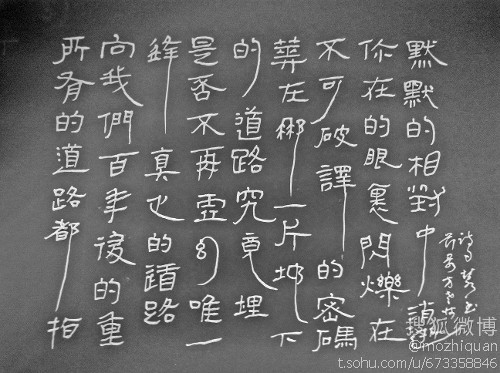 所有的道路都指
向我們百年後的重
逢真正的道路
是否不再虛幻唯一
的道路究竟埋
葬在哪一片地下
不可破譯的密碼
你在的眼裏閃爍在
默默的相對中
搜狐微博
@mozhiquan
t.sohu.com/u/673358846